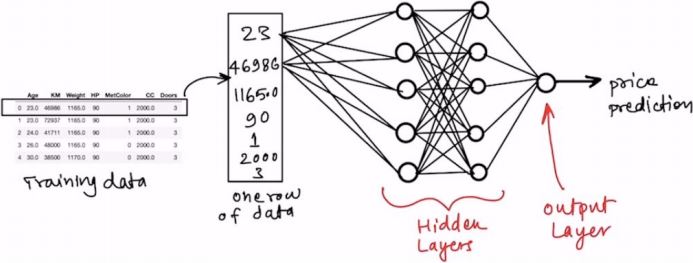 Age KM Weight HP MetColor CC Doors
0 23.0 46986 1165.0 90 1 2000.0 3
1 23.0 72937 1165.0 90 1 2000.0 3
2 24.0 41711 1165.0 90 1 2000.0 3
3 26.0 48000 1165.0 90 0 2000.0 3
4 30.0 38500 1170.0 90 0 2000.0 3
Training data
23
46986
1165.0
90
1
2000
3
one row
of data
Hidden
Layers
output
Layer
price
prediction